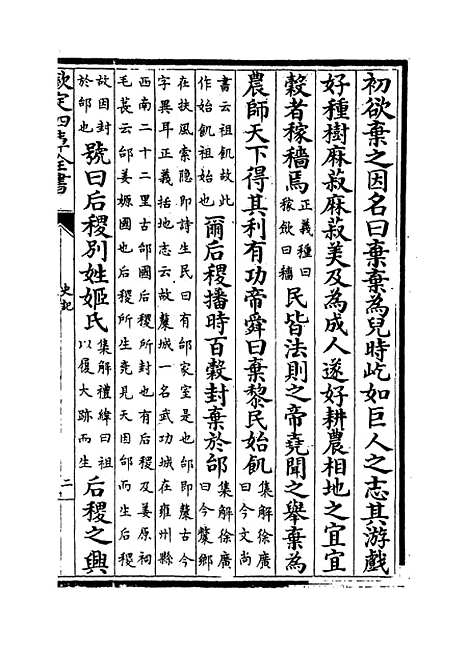 初欲棄之因名曰棄棄為兒時屹如巨人之志其游戲
好種樹麻菽麻菽美及為成人遂好耕農相地之宜宜
榖者稼穡焉正義種曰稼歛曰穡民皆法則之帝堯聞之舉棄為
農師天下得其利有功帝舜曰棄黎民始飢集解徐廣曰今文尚
書云祖飢故此作始飢祖始也爾后稷播時百榖封棄於邰集解徐廣曰今斄鄉
在扶風索隱即詩生民曰有邰家室是也邰即斄古今
字異耳正義括地志云故斄城一名武功城在雍州縣
西南二十二里古邰國后稷所封也有后稷及姜原祠
毛萇云邰姜嫄國也后稷所生堯見天因邰而生后稷
故因封於邰也號曰后稷別姓姬氏集解禮緯曰祖以履大跡而生后稷之興
欽定四庫全書
史記
二